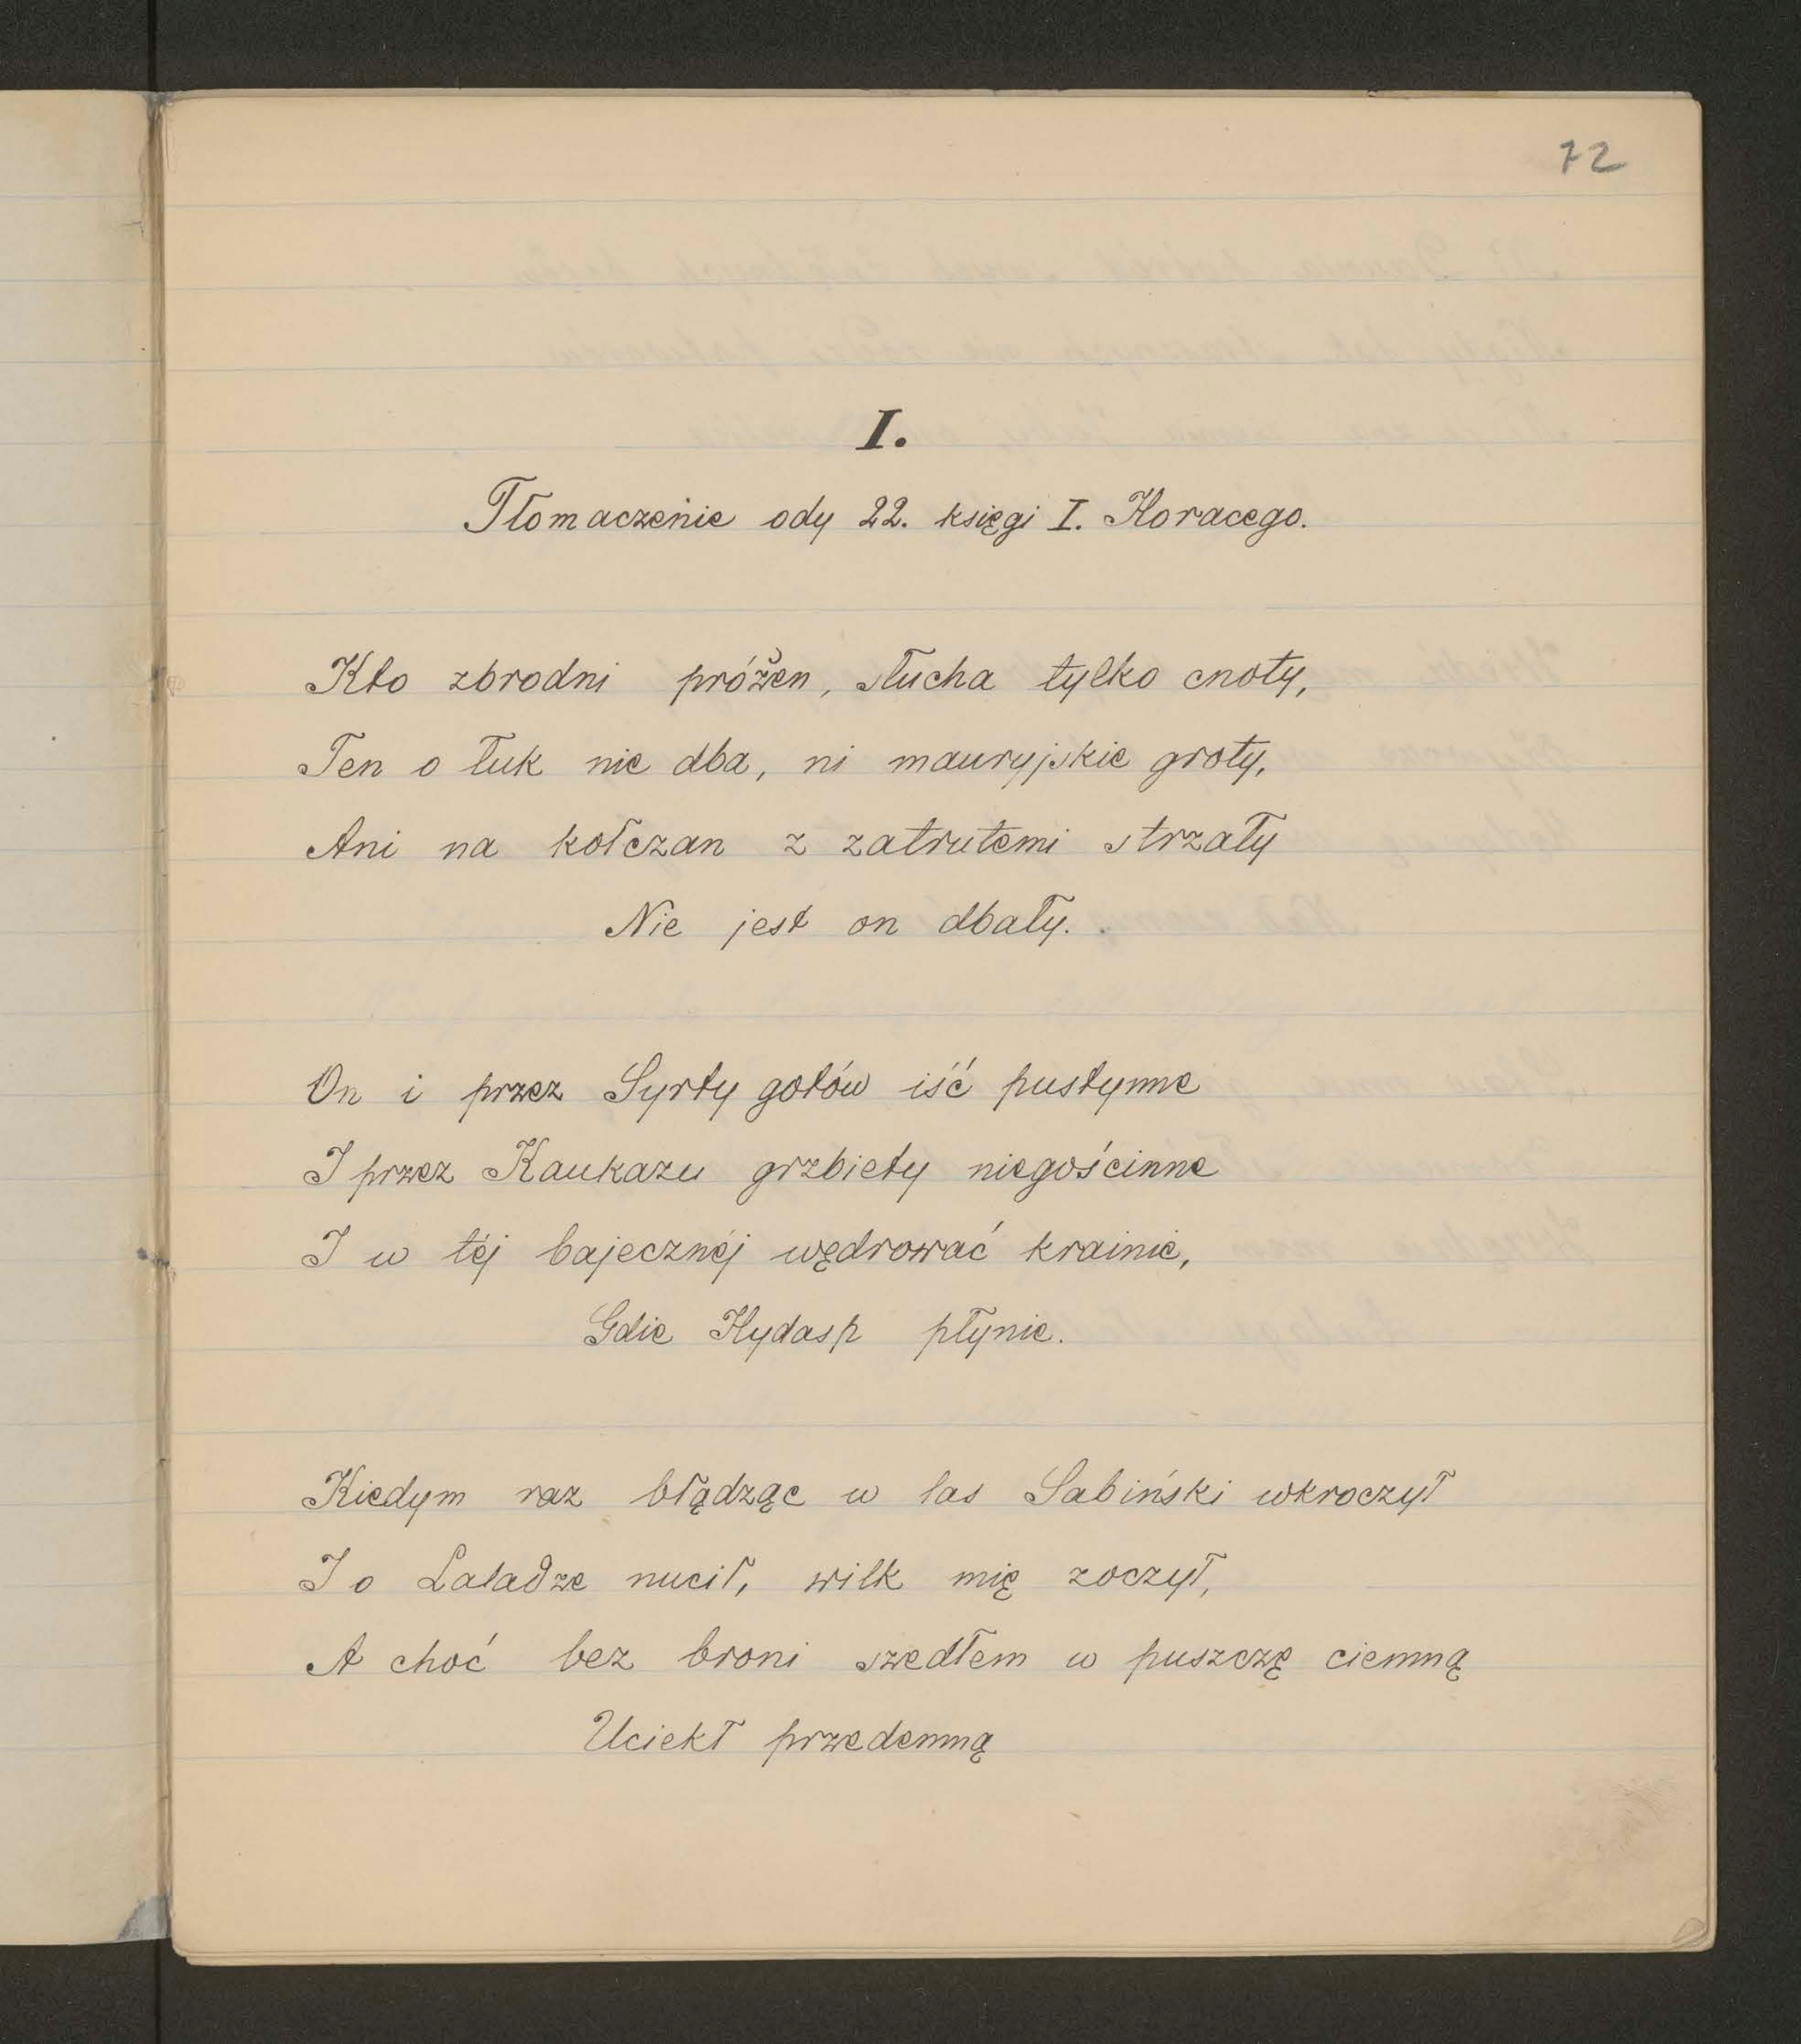 72
I.
Tłomaczenie ody 22. księgi I. Horacego.
Kto zbrodni próżen, słucha tylko cnoty,
Ten o łuk nie dba, ni mauryjskie groty,
Ani na kołczan z zatrutemi strzały
Nie jest on dbały.
On i przez Syrty gotów iść pustynne
I przez Kaukazu grzbiety niegościnne
I w téj bajecznéj wędrować krainie,
Gdie Hydasp płynie.
Kiedym raz błądząc w las Sabiński wkroczył
I o Laladze nucił, wilk mię zoczył,
A choć bez broni szedłem w puszczę ciemną
Uciekł przedemną